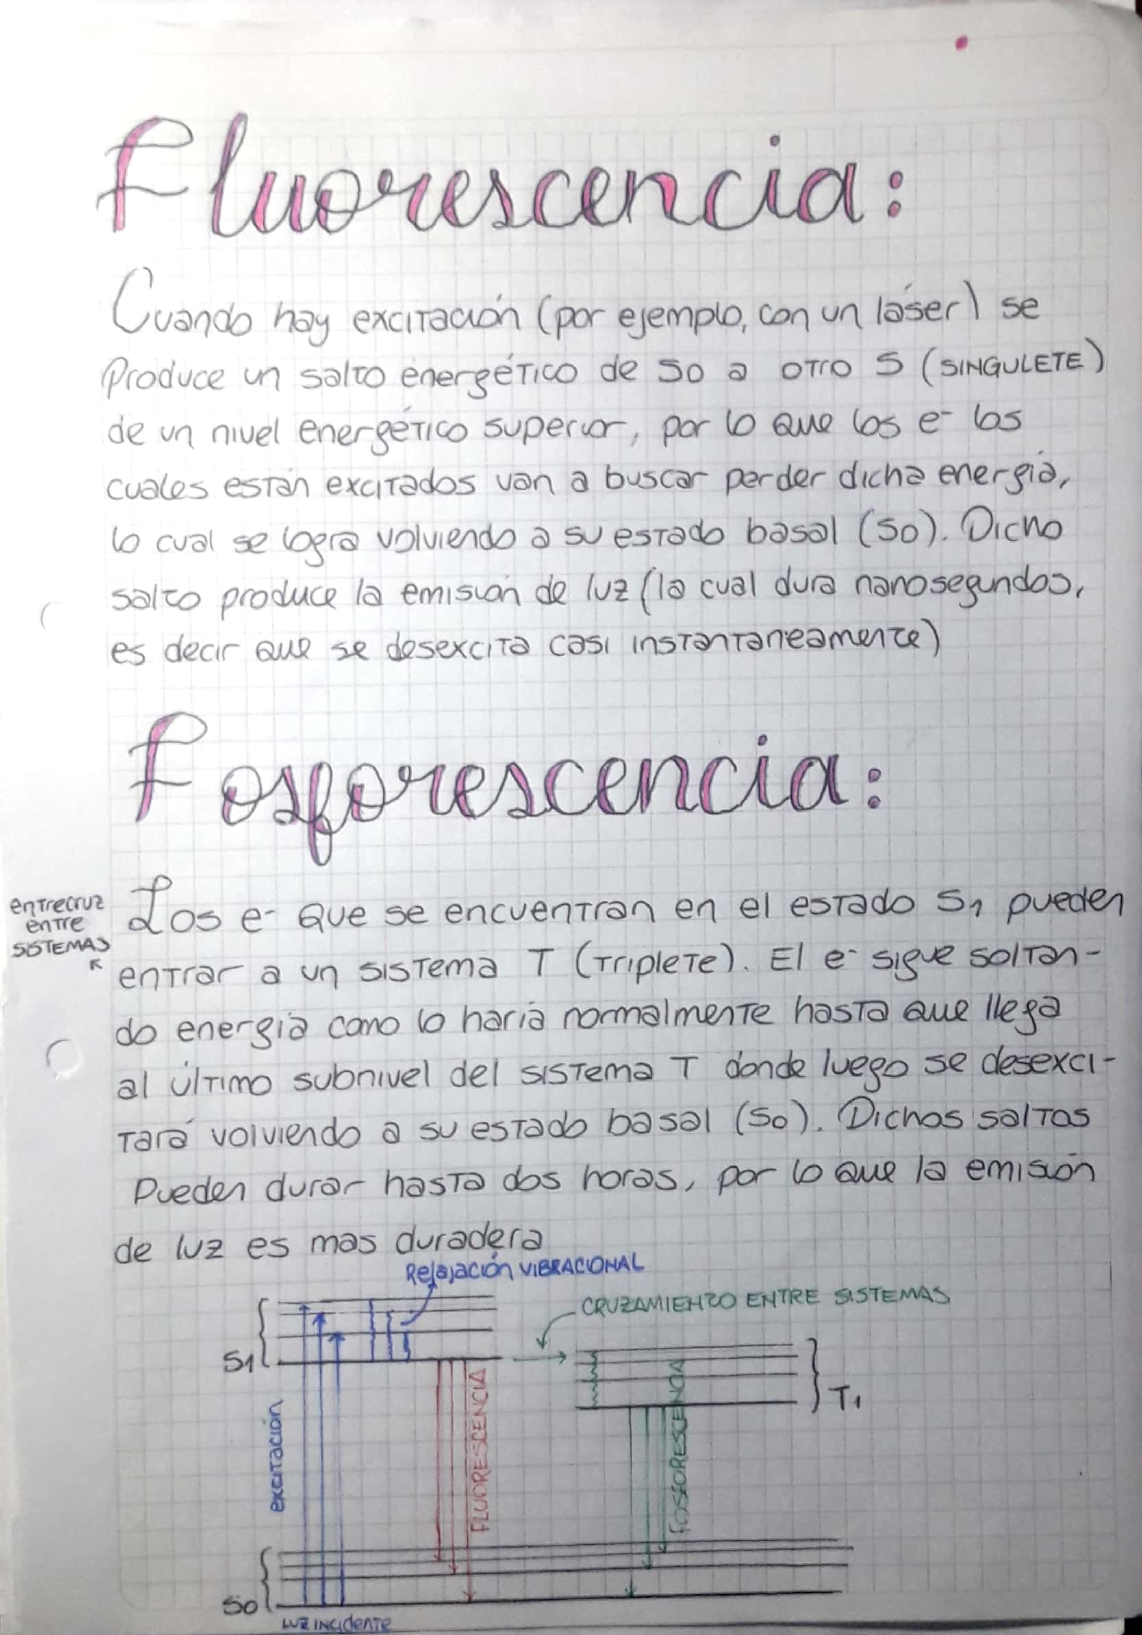 Fluorescencia:
Cuando hay excitación (por ejemplo, con un láser) se
produce un salto energético de S0 a otro S (SINGULETE)
de un nivel energético superior, por lo que los e- los
cuales están excitados van a buscar perder dicha energía,
lo cual se logra volviendo a su estado basal (S0). Dicho
salto produce la emisión de luz (la cual dura nanosegundos,
es decir que se desexcita casi instantaneamente)
Fosforescencia:
entrecruz
entre
SISTEMAS
Los e- que se encuentran en el estado S1 pueden
entrar a un sistema T (Triplete). El e- sigue soltan-
do energía como lo haría normalmente hasta que llega
al último subnivel del sistema T donde luego se desexci-
tará volviendo a su estado basal (S0). Dichos saltos
Pueden durar hasta dos horas, por lo que la emisión
de luz es mas duradera
Relajación VIBRACIONAL
CRUZAMIENTO ENTRE SISTEMAS
S1
T1
excitación
FLUORESCENCIA
FOSFORESCENCIA
S0
LUZ INCIdente